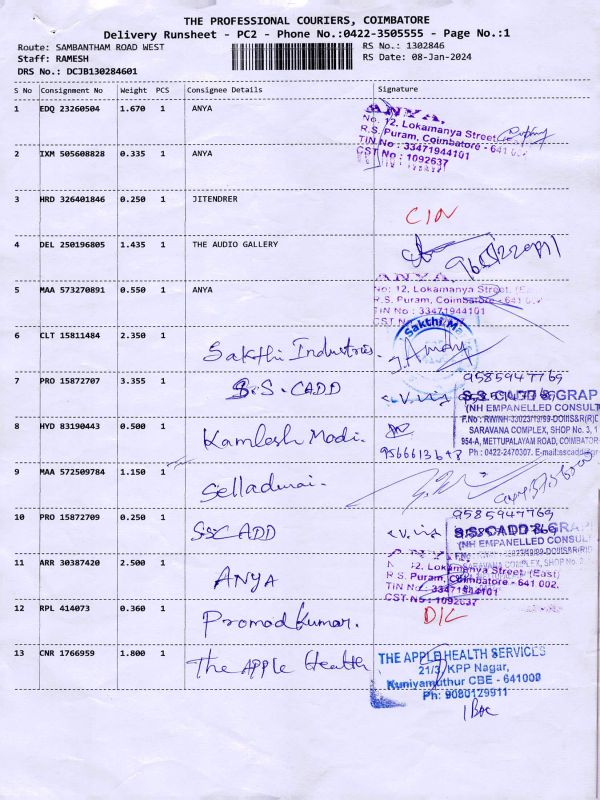 THE PROFESSIONAL COURIERS, COIMBATORE
Delivery Runsheet - PC2 - Phone No.:0422-3505555 - Page No.:1
Route: SAMBANTHAM ROAD WEST RS No.: 1302846
Staff: RAMESH RS Date: 08-Jan-2024
DRS No.: DCJB130284601
S No Consignment No Weight PCS Consignee Details Signature
1 EDQ 23260504 1.670 1 ANYA
ANYA.
No. 12, Lokamanya Street
R.S. Puram, Coimbatore - 641
TIN No : 33471944101
CST No : 1092637
2 IXM 505608828 0.335 1 ANYA
3 HRD 326401846 0.250 1 JITENDRER
4 DEL 250196805 1.435 1 THE AUDIO GALLERY
5 MAA 573270891 0.550 1 ANYA
ANYA.
No: 12, Lokamanya Street,
R.S. Puram, Coimbatore - 641
TIN No : 33471944101
CST No
6 CLT 15811484 2.350 1 Sakthi Industries.
Sakthi
7 PRO 15872707 3.355 1 S.S.CADD
9585947769
(NH EMPANELLED CONSULT
SARAVANA COMPLEX, SHOP No. 3, 1
954-A, METTUPALAYAM ROAD, COIMBATOR
Ph : 0422-2470307. E-mail:sscaddgr
8 HYD 83190443 0.500 1 Kamlesh Modi.
9 MAA 572509784 1.150 1 Selladurai.
10 PRO 15872709 0.250 1 SSCADD
9585947769
S.S.CADD & GRAP
(NH EMPANELLED CONSUL
11 ARR 30387420 2.500 1 ANYA
12, Lokamanya Street, (East)
R.S. Puram, Coimbatore - 641 002.
TIN No : 33471944101
CST No : 1092637
12 RPL 414073 0.360 1 Promod Kumar. D/L
13 CNR 1766959 1.800 1 The Apple Health
THE APPLE HEALTH SERVICES
21/3, KPP Nagar,
Kuniyamuthur CBE - 641008
Ph: 9080129911
1 Box